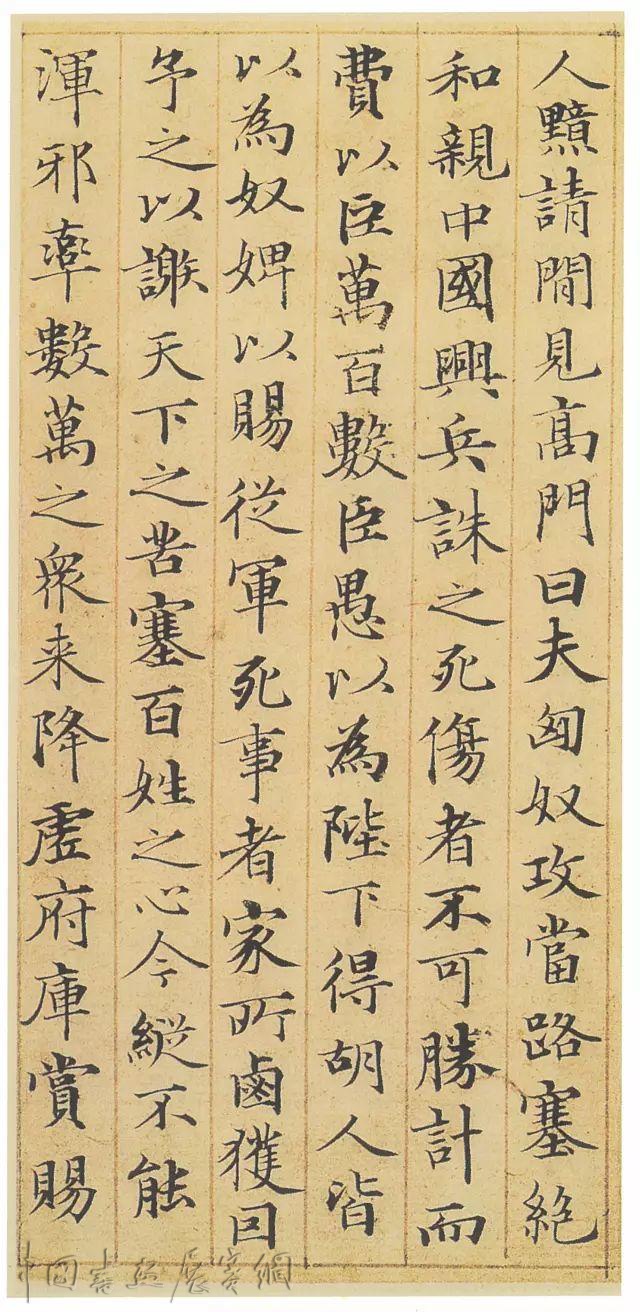 人黯請閒見高門曰夫匈奴攻當路塞絕
和親中國興兵誅之死傷者不可勝計而
費以臣萬百數臣愚以為陛下得胡人皆
以為奴婢以賜從軍死事者家所鹵獲回
予之以謝天下之苦塞百姓之心今縱不能
渾邪率數萬之衆来降虛府庫賞賜
中国書法展賽網